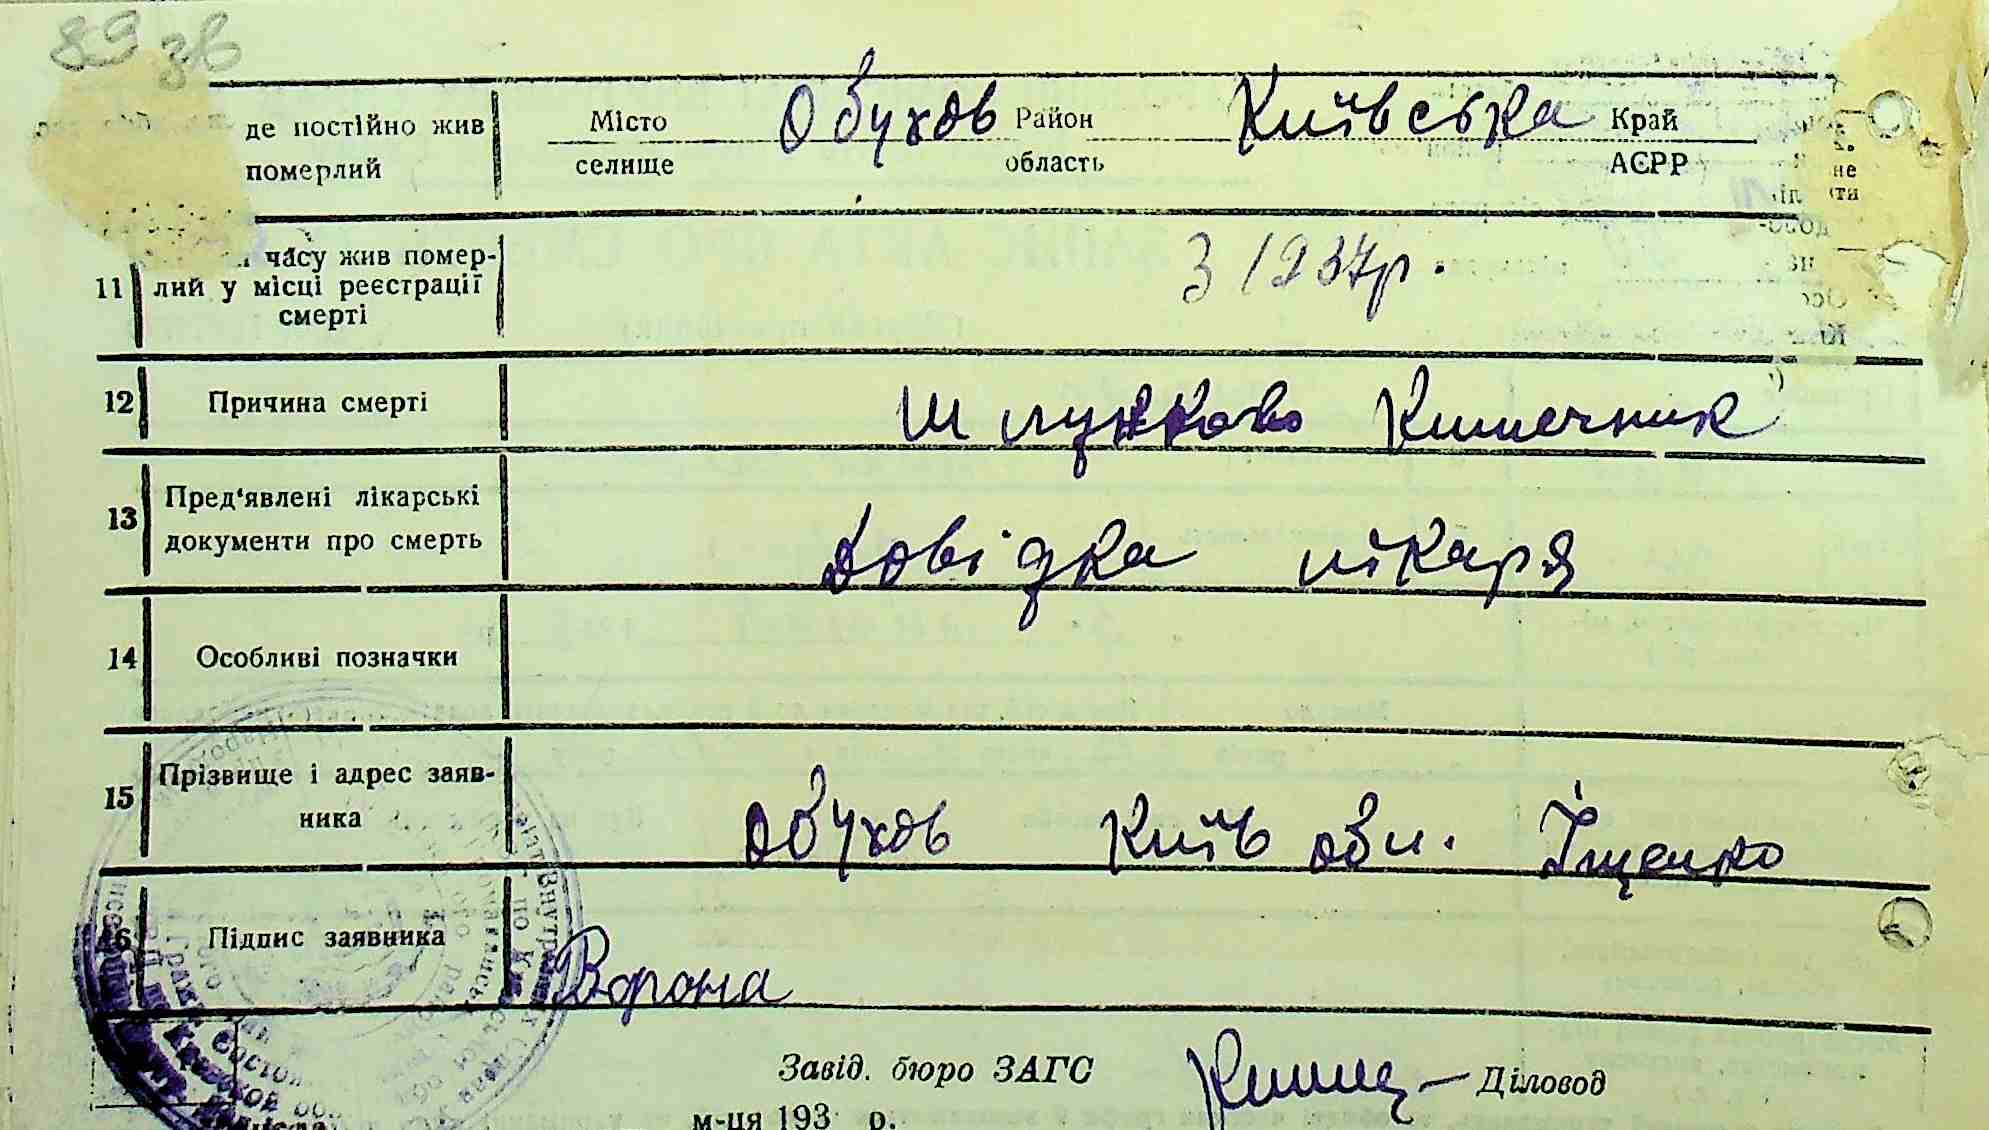 89 зв
де постійно жив
померлий
Місто Обухов Район Київська Край
селище область АЄРР
11 часу жив помер-
лий у місці реєстрації
смерті
З 1937р.
12 Причина смерті Шлунково Кишечник
13 Пред'явлені лікарські
документи про смерть
Довідка лікаря
14 Особливі позначки
15 Прізвище і адрес заяв-
ника
Обухов Київ обл. Іщенко
16 Підпис заявника Ворона
Завід. бюро ЗАГС Діловод
м-ця 193 р.